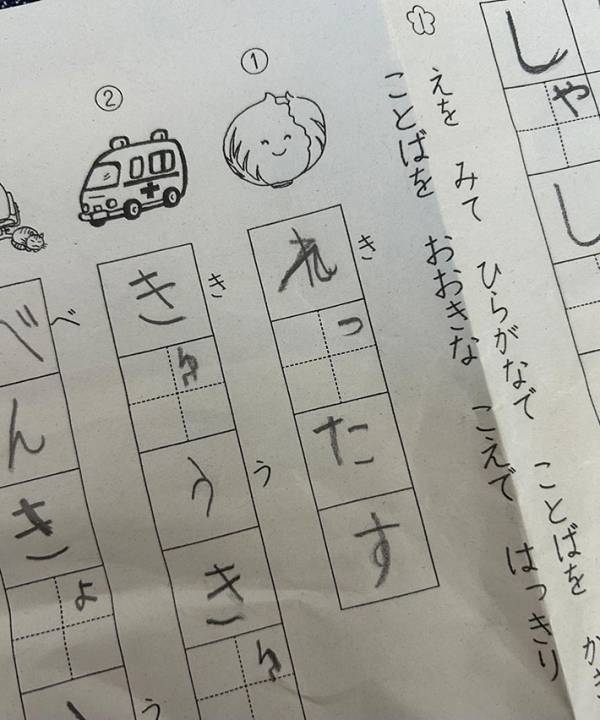 しゃし
1 えを みて ひらがなで ことばを かき
ことばを おおきな こえで はっきり
①
き
れったす
②
き う
きゅうきゅ
べ う
べんきょ